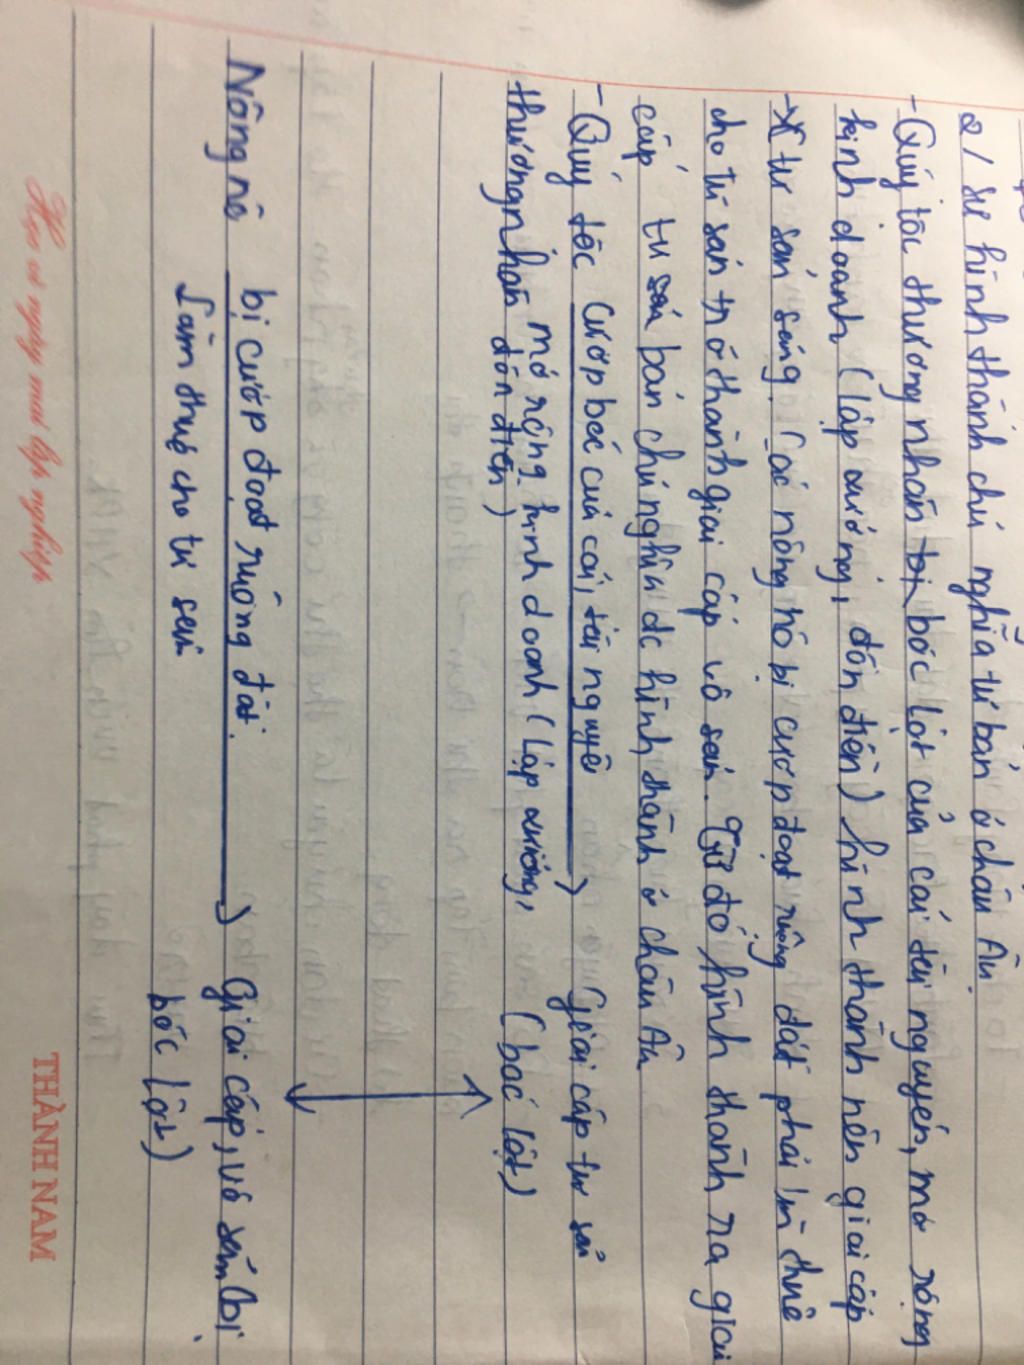 2/ Sự hình thành chủ nghĩa tư bản ở châu Âu
- Quý tộc thương nhân bị bóc lột của cải tài nguyên, mở rộng
kinh doanh (lập xưởng, đồn điền) hình thành nên giai cấp
tư sản sáng. Các nông hộ bị cướp đoạt ruộng đất phải làm thuê
cho tư sản trở thành giai cấp vô sản. Từ đó hình thành ra giai
cấp tư sản bản chủ nghĩa đc hình thành ở châu Âu
- Quý tộc cướp bóc của cải, tài nguyên Giai cấp tư sản
thương nhân mở rộng kinh doanh (lập xưởng, (bóc lột)
đồn điền)
Nông nô bị cướp đoạt ruộng đất. Giai cấp vô sản (bị
Làm thuê cho tư sản bóc lột)
Học vì ngày mai lập nghiệp
THÀNH NAM